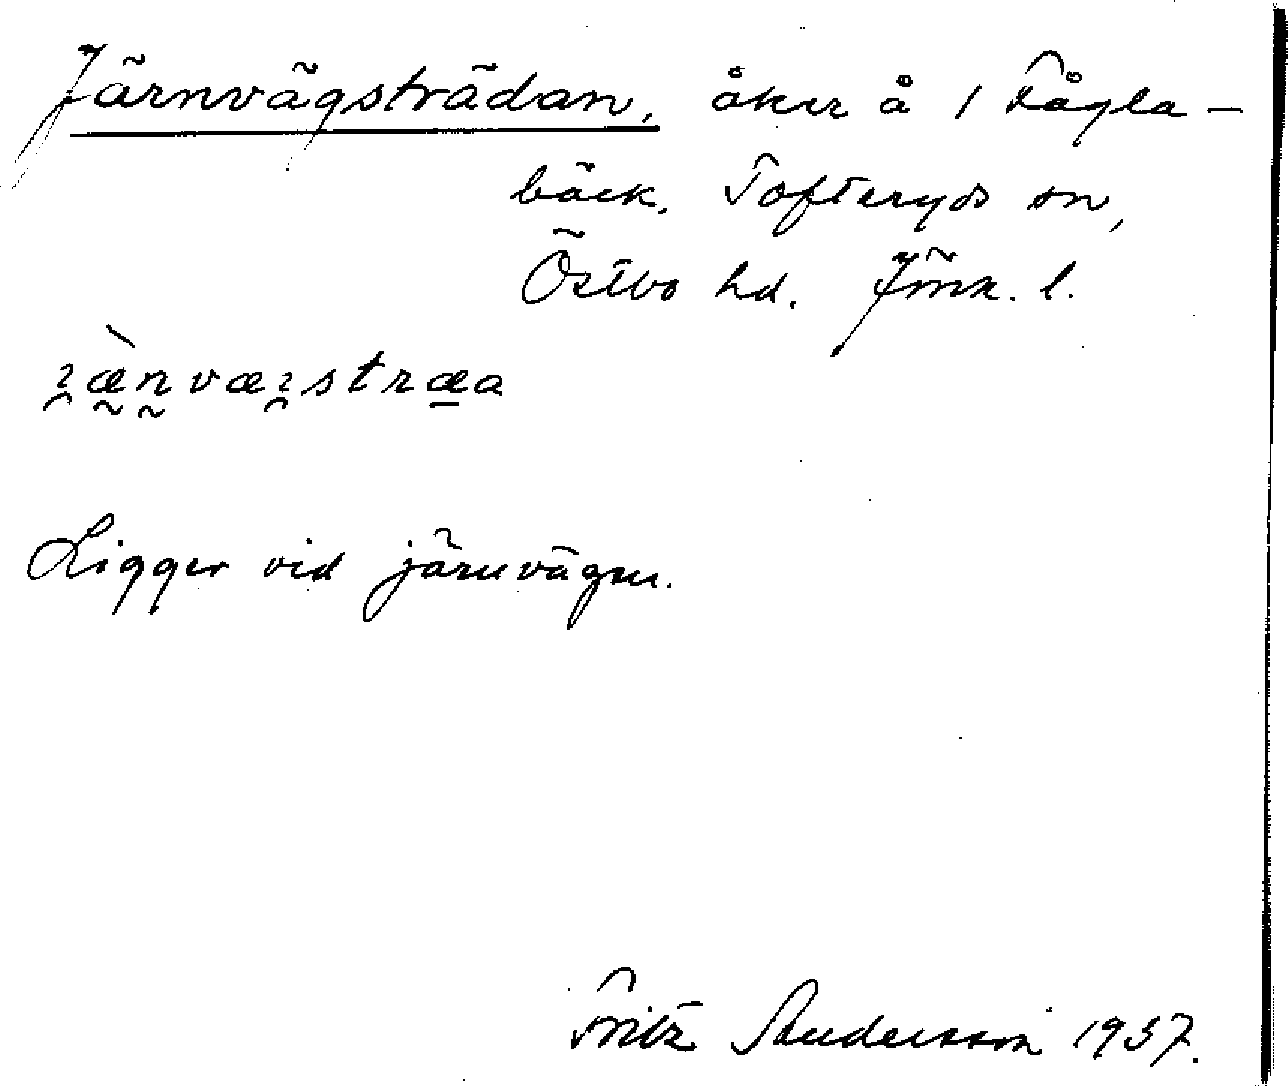 Järnvägsträdan, åker å 1 Fågla-
bäck. Tofteryds sn,
Östbo hd. Jönk. l.
Ligger vid järnvägen.
Fritz Andersson 1937.